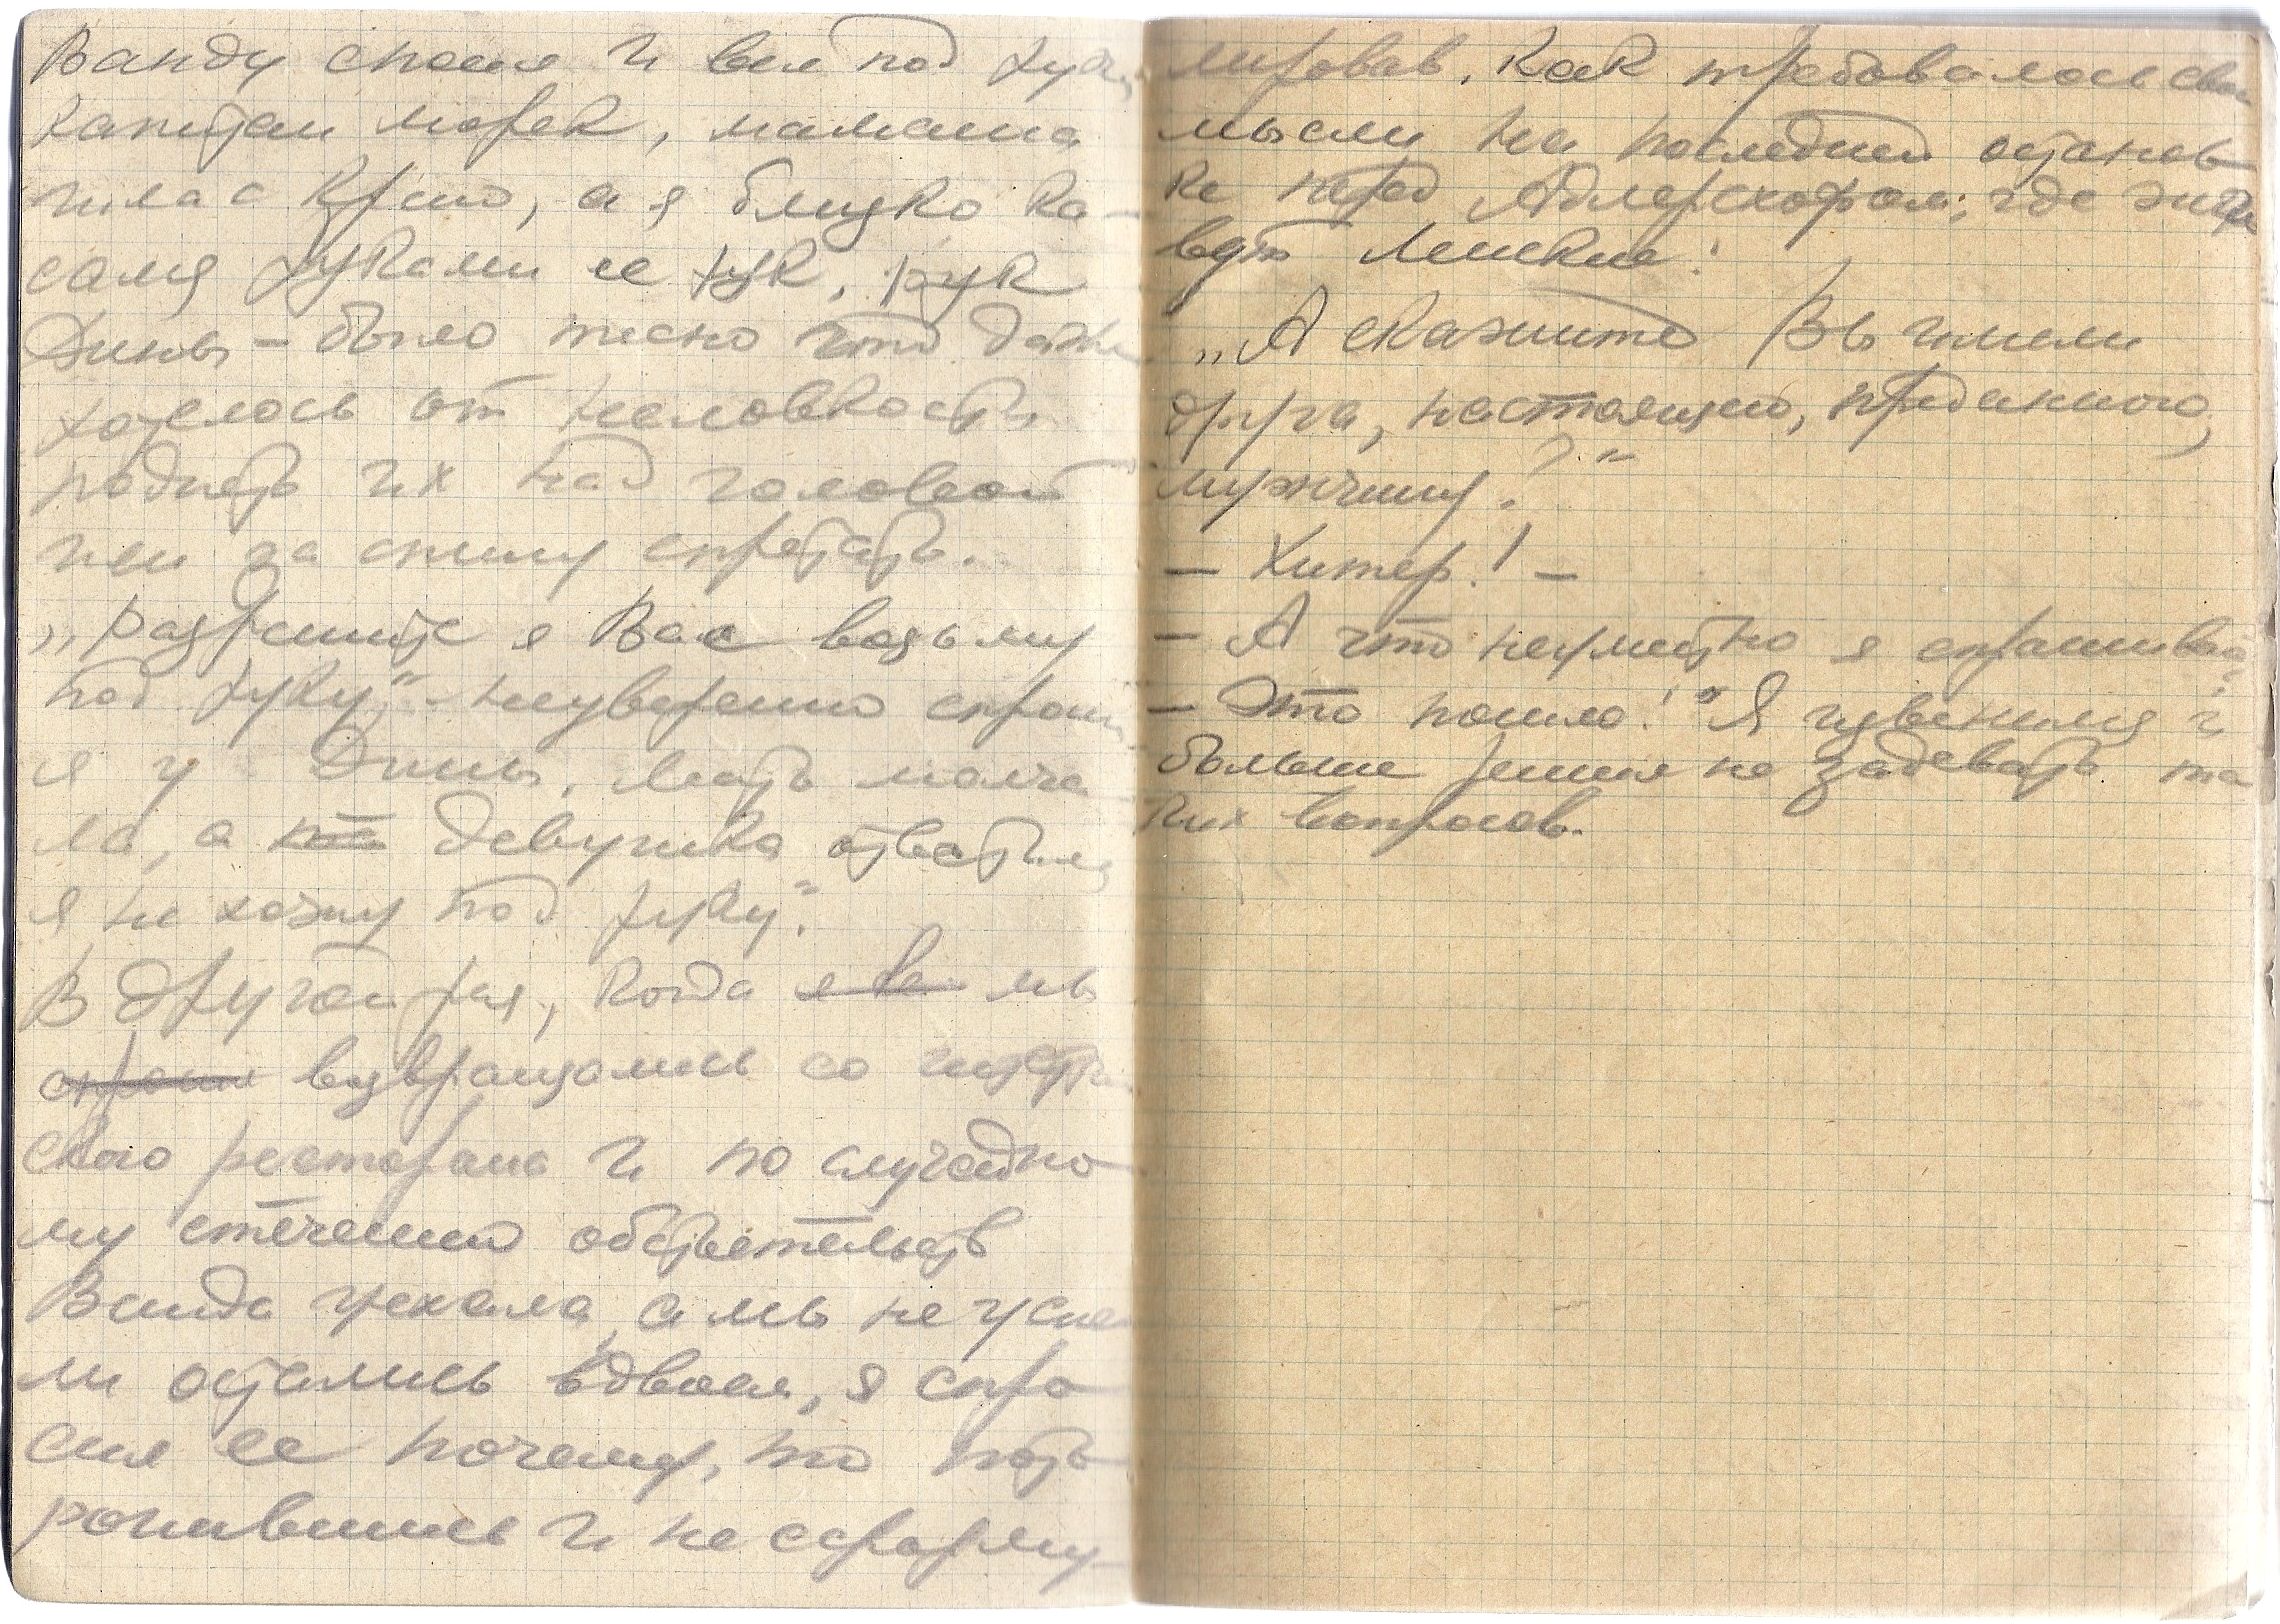 Ванду спеша и вел под руку
капитан моряк, мамаша
шла с Крит, а я близко ка-
сался руками ее рук, рук
Дины – было тесно что даже
хотелось от неловкости
поднять их над головой
или за спину спрятать.
„Разрешите я Вас возьму
под руку" – неуверенно спросил
я у Дины. Мать молча-
ла, а девушка ответила
я не хожу под руку".
В другой раз, когда я ве мы
спросил возвращались со
ского ресторана и по случайно-
му стечению обстоятельств
Ванда уехала, а мы не успе-
ли остались вдвоем, я спро-
сил ее почему, то пото-
ропившись и не сформу-
лировав, как требовалось свои
мысли на последней останов-
ке перед Адлерсхофом, где
„А скажите Вы имели
друга, настоящего, преданного,
мужчину?"
– Хитер! –
– А что неуместно я спрашиваю?
– Это пошло!" Я извинился и
больше решил не задевать та-
ких вопросов.